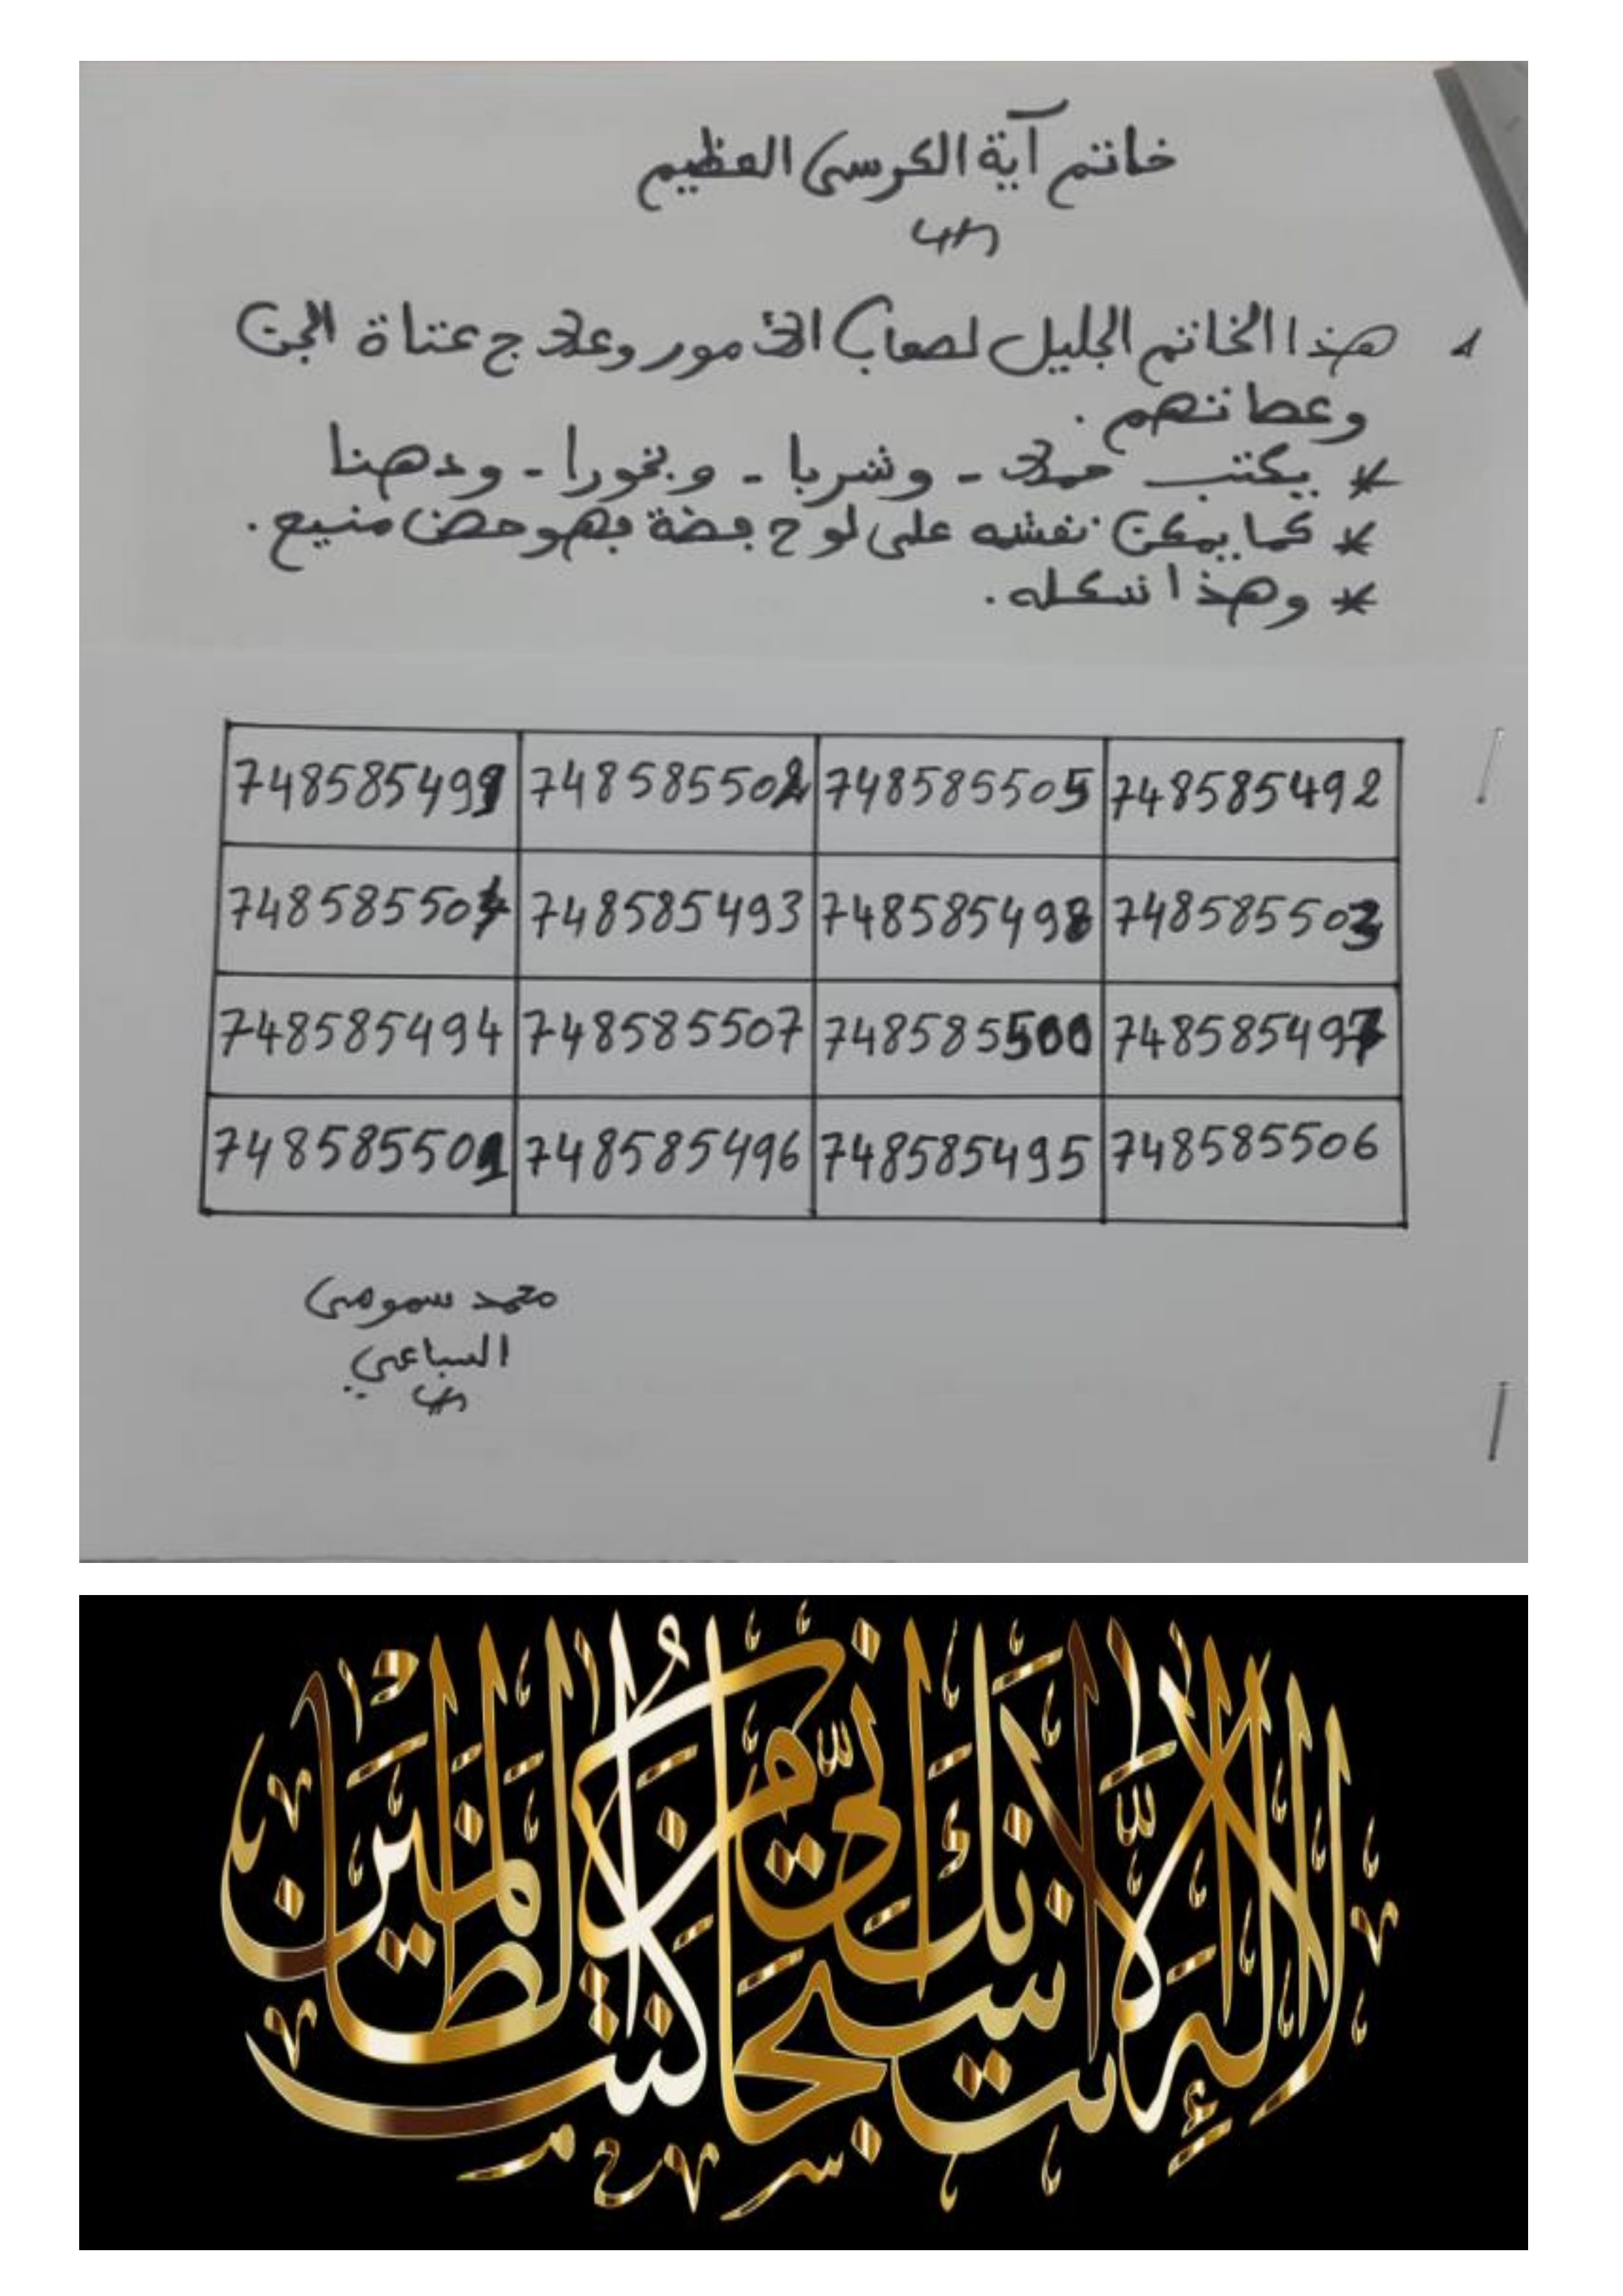 خاتم آية الكرسي العظيم
1 هذا الخاتم الجليل لصعاب الأمور وعلاج عتاة الجن
وعصاتهم .
* يكتب حملا - وشربا - وبخورا - ودهنا
* كما يمكن نقشه على لوح فضة فهو حصن منيع .
* وهذا شكله .
748585499 748585502 748585505 748585492
748585504 748585493 748585498 748585503
748585494 748585507 748585500 748585497
748585501 748585496 748585495 748585506
محمد سمومي
السباعي
لَا إِلَٰهَ إِلَّا أَنْتَ سُبْحَانَكَ إِنِّي كُنْتُ مِنَ الظَّالِمِينَ